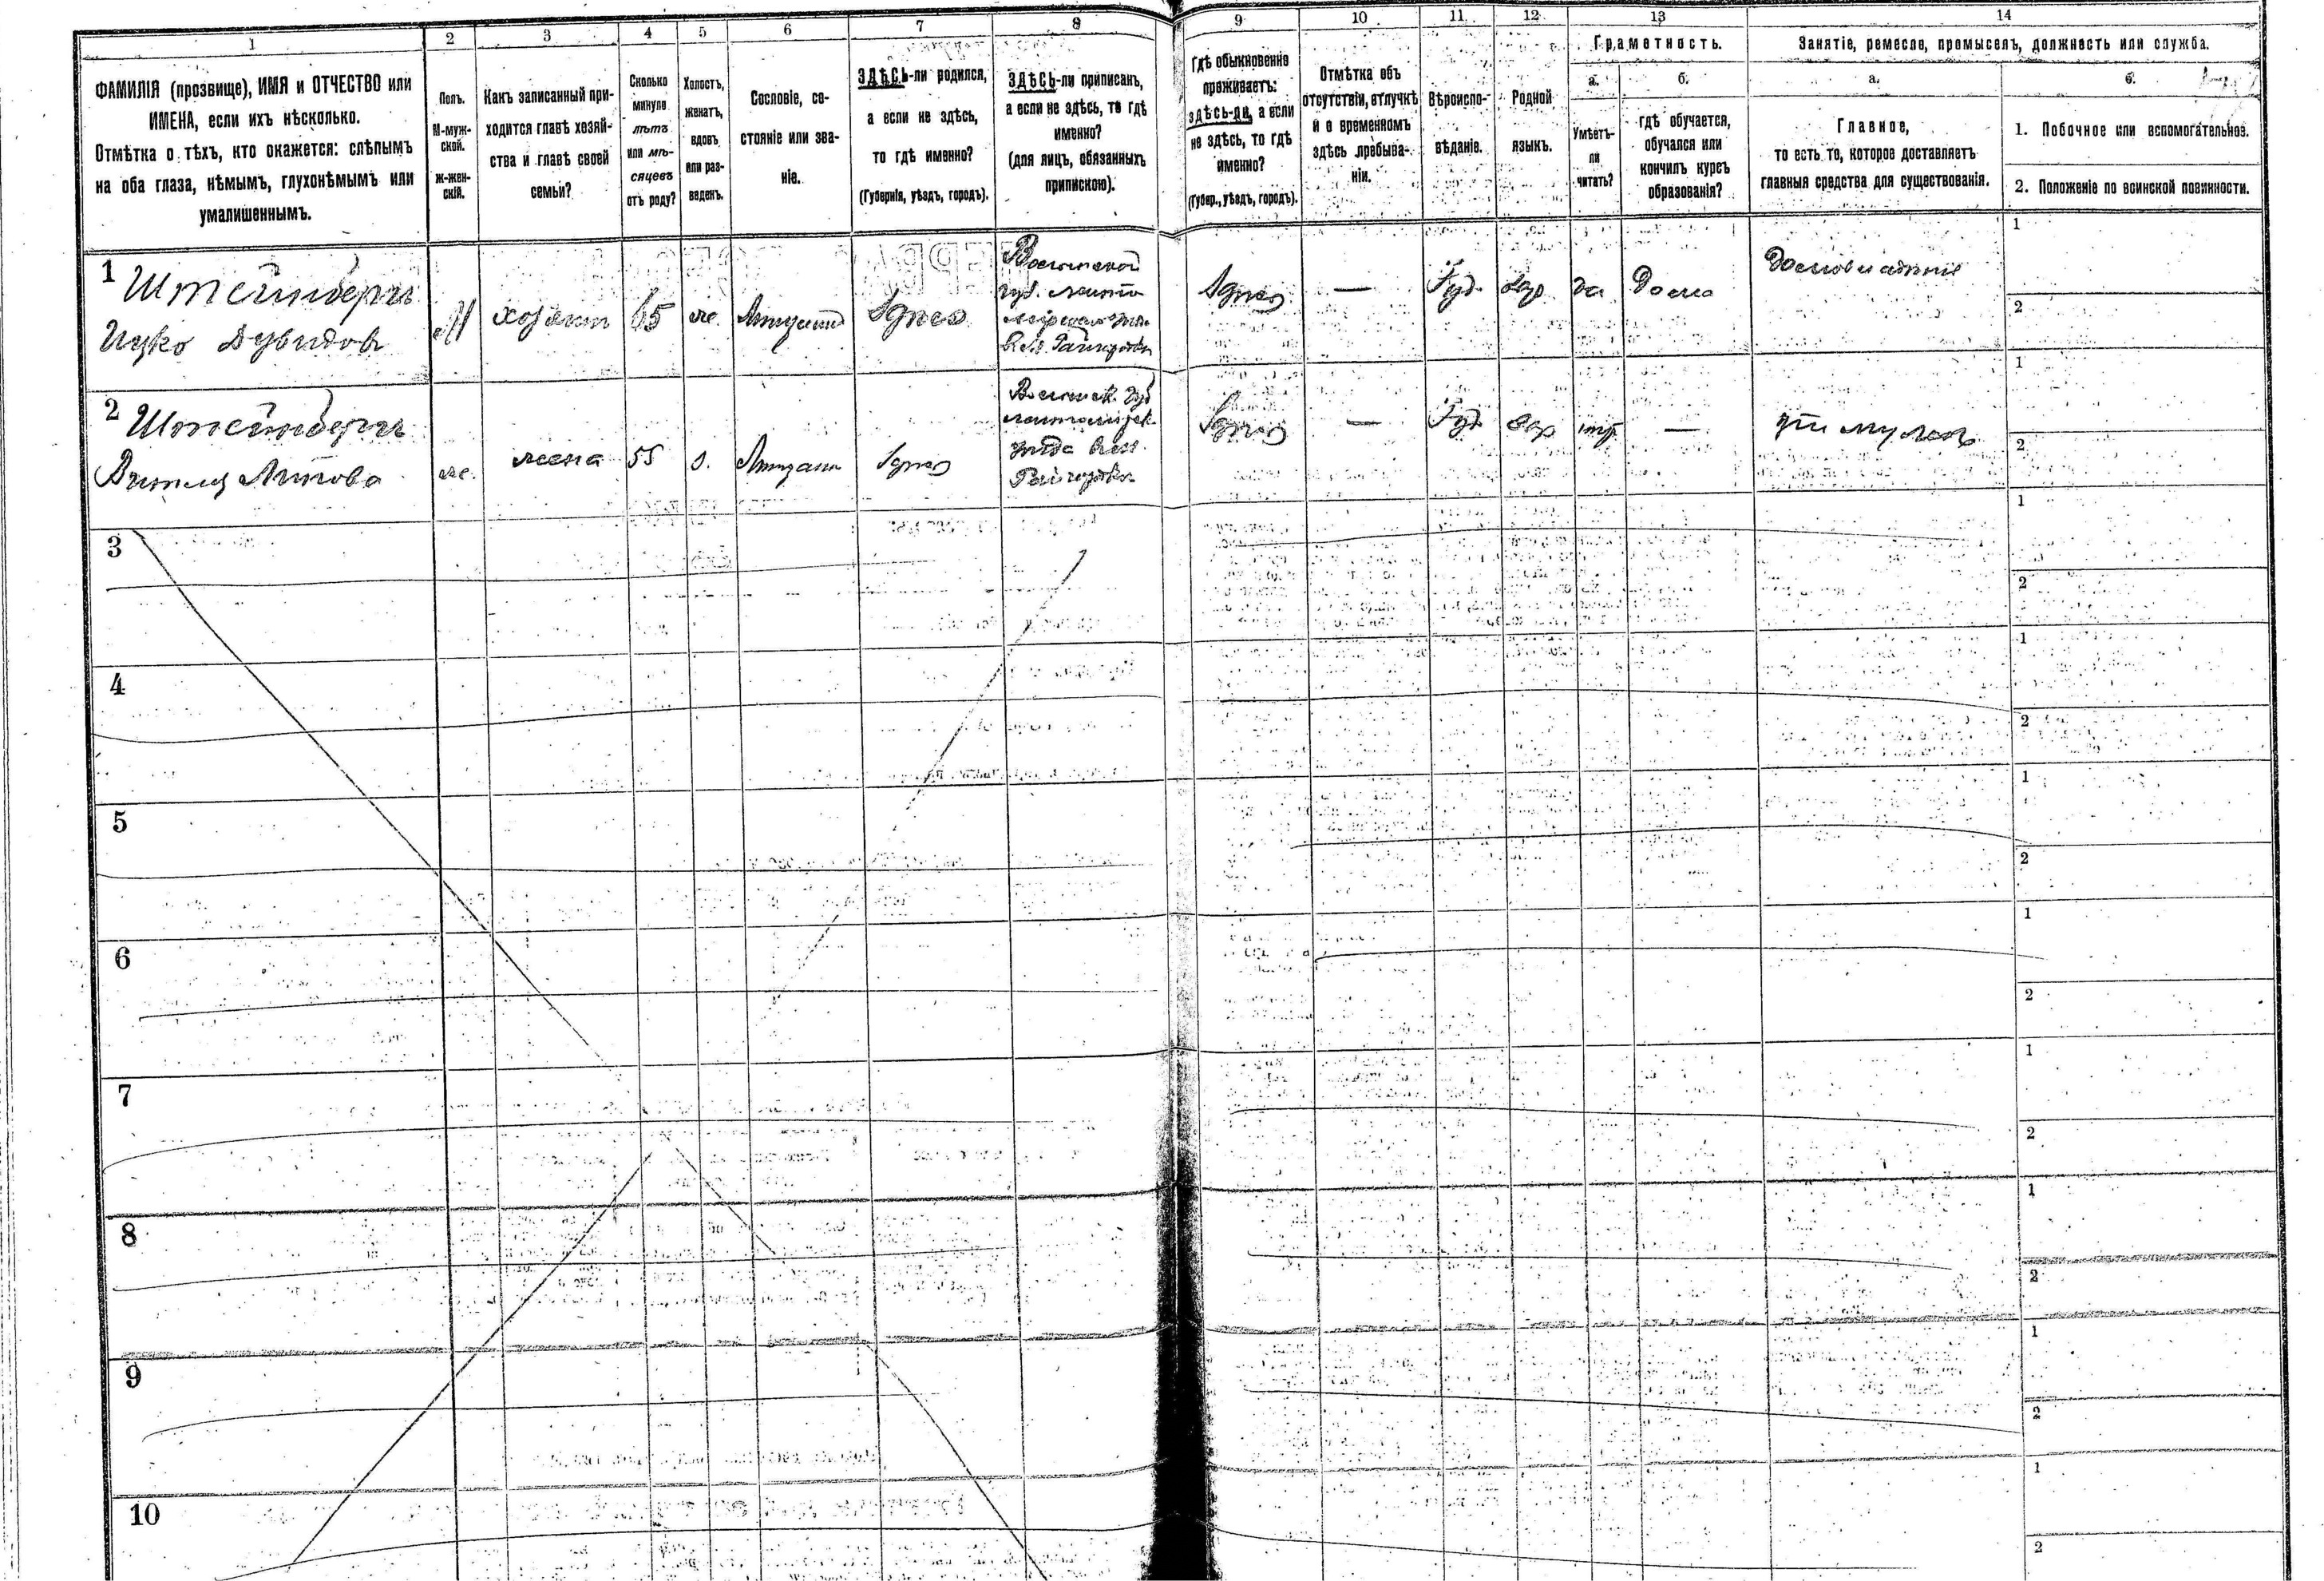 1
2
3
4
5
6
7
8
9
10
11
12
13
14
ФАМИЛІЯ (прозвище), ИМЯ и ОТЧЕСТВО или
ИМЕНА, если ихъ нѣсколько.
Отмѣтка о тѣхъ, кто окажется: слѣпымъ
на оба глаза, нѣмымъ, глухонѣмымъ или
умалишеннымъ.
Полъ.
М-муж-
ской.
Ж-жен-
скій.
Какъ записанный при-
ходится главѣ хозяй-
ства и главѣ своей
семьи?
Сколько
минуло
лѣтъ
или мѣ-
сяцевъ
отъ роду?
Холостъ,
женатъ,
вдовъ
или раз-
веденъ.
Сословіе, со-
стояніе или зва-
ніе.
ЗДѢСЬ-ли родился,
а если не здѣсь,
то гдѣ именно?
(Губернія, уѣздъ, городъ).
ЗДѢСЬ-ли приписанъ,
а если не здѣсь, то гдѣ
именно?
(для лицъ, обязанныхъ
припискою).
Гдѣ обыкновенно
проживаетъ:
здѣсь-ли, а если
не здѣсь, то гдѣ
именно?
(Губер., уѣздъ, городъ).
Отмѣтка объ
отсутствіи, отлучкѣ
и о временномъ
здѣсь пребыва-
ніи.
Вѣроиспо-
вѣданіе.
Родной
языкъ.
Грамотность.
а.
Умѣетъ-
ли
читать?
б.
гдѣ обучается,
обучался или
кончилъ курсъ
образованія?
Занятіе, ремесло, промыселъ, должность или служба.
а.
Главное,
то есть то, которое доставляетъ
главныя средства для существованія.
б.
1. Побочное или вспомогательное.
2. Положеніе по воинской повинности.
1
Штейнбергъ
Ицко Дувидовъ
М
хозяинъ
65
же.
Здѣсь
Волынской
губ.
Здѣсь
—
Іуд.
Евр
да
Дома
1
2
2
Штейнбергъ
же.
жена
55
з.
Здѣсь
Волынск. губ
уѣзда
Здѣсь
—
Іуд
Евр
—
при мужѣ
1
2
3
1
2
4
1
2
5
1
2
6
1
2
7
1
2
8
1
2
9
1
2
10
1
2